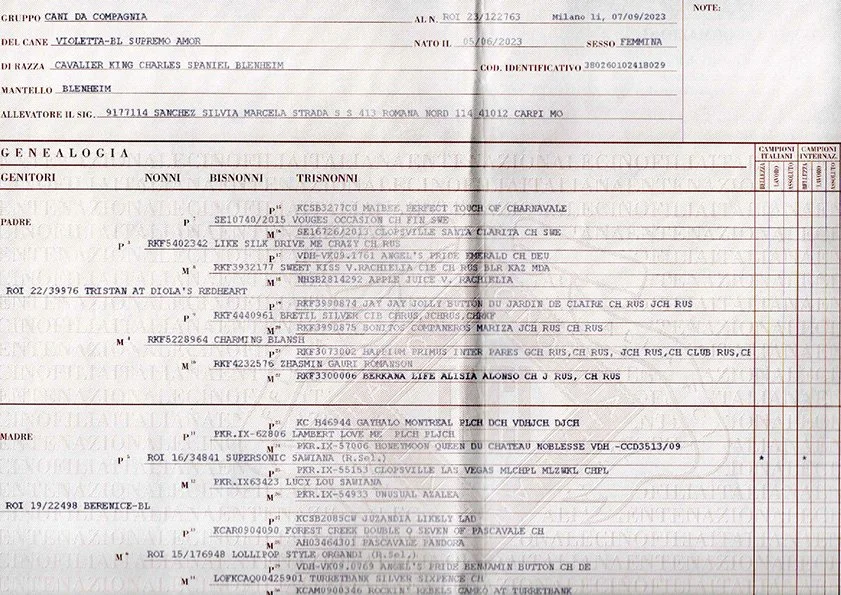 GRUPPO CANI DA COMPAGNIA AL N. ROI 23/122763 Milano lì, 07/09/2023 NOTE:
DEL CANE VIOLETTA-BL SUPREMO AMOR NATO IL 05/06/2023 SESSO FEMMINA
DI RAZZA CAVALIER KING CHARLES SPANIEL BLENHEIM COD. IDENTIFICATIVO 380260102418029
MANTELLO BLENHEIM
ALLEVATORE IL SIG. 9177114 SANCHEZ SILVIA MARCELA STRADA S S 413 ROMANA NORD 114 41012 CARPI MO
GENEALOGIA CAMPIONI ITALIANI CAMPIONI INTERNAZ.
GENITORI NONNI BISNONNI TRISNONNI BELLEZZA LAVORO ASSOLUTO BELLEZZA LAVORO ASSOLUTO
P KCSB3277CU MAIBEE PERFECT TOUCH OF CHARNAVALE
PADRE P SE10740/2015 VOUGES OCCASION CH FIN SWE
M SE16726/2013 CLOPSVILLE SANTA CLARITA CH SWE
P RKF5402342 LIKE SILK DRIVE ME CRAZY CH RUS
P VDH-VK09.1761 ANGEL'S PRIDE EMERALD CH DEU
M RKF3932177 SWEET KISS V.RACHIELIA CIB CH RUS BLR KAZ MDA
M NHSB2814292 APPLE JUICE V. RACHIELIA
ROI 22/39976 TRISTAN AT DIOLA'S REDHEART
P RKF3990874 JAY JAY JOLLY BUTTON DU JARDIN DE CLAIRE CH RUS JCH RUS
P RKF4440961 BRETIL SILVER CIB CHRUS,JCHRUS,CHRKF
M RKF3990875 BONITOS COMPANEROS MARIZA JCH RUS CH RUS
M RKF5228964 CHARMING BLANSH
P RKF3073002 HAPLIUM PRIMUS INTER PARES GCH RUS,CH RUS, JCH RUS,CH CLUB RUS,CH
M RKF4232576 ZHASMIN GAURI ROMANSON
M RKF3300006 BERKANA LIFE ALISIA ALONSO CH J RUS, CH RUS
P KC H46944 GAYHALO MONTREAL PLCH DCH VDHJCH DJCH
MADRE P PKR.IX-62806 LAMBERT LOVE ME PLCH PLJCH
M PKR.IX-57006 HONEYMOON QUEEN DU CHATEAU NOBLESSE VDH -CCD3513/09
P ROI 16/34841 SUPERSONIC SAWIANA (R.Sel.) * *
P PKR.IX-55153 CLOPSVILLE LAS VEGAS MLCHPL MLZWKL CHPL
M PKR.IX63423 LUCY LOU SAWIANA
M PKR.IX-54933 UNUSUAL AZALEA
ROI 19/22498 BERENICE-BL
P KCSB2085CW JUZANDIA LIKELY LAD
P KCAR0904090 FOREST CREEK DOUBLE O SEVEN OF PASCAVALE CH
M AH03464301 PASCAVALE PANDORA
M ROI 15/176948 LOLLIPOP STYLE ORGANDI (R.Sel.)
P VDH-VK09.0769 ANGEL'S PRIDE BENJAMIN BUTTON CH DE
M LOFKCAQ00425901 TURRETBANK SILVER SIXPENCE CH
M KCAM0900346 ROCKIN' REBELS CAMEO AT TURRETBANK